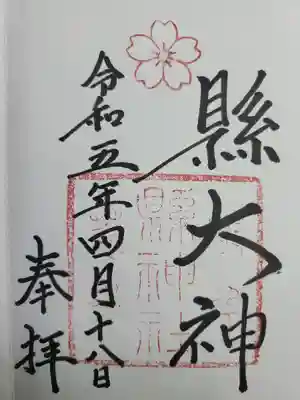 縣大神
令和五年四月十八日
奉拝